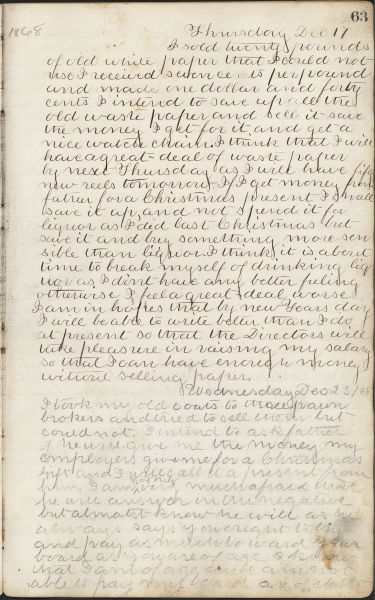 63
1868 Thursday Dec 17
I sold twenty pounds
of old white paper that I could not
use I received seven cents per pound
and made one dollar and forty
cents I intend to save up all the
old waste paper and sell it save
the money I get for it and get a
nice watch chain I think that I will
have a great deal of waste paper
by next Thursday as I will have fifty
new reels tomorrow If I get money from
father for a Christmas present I shall
save it up and not spend it for
liquor as I did last Christmas but
save it and buy something more sen
sible than liquor I think it is about
time to break myself of drinking liq
uor as I dont have any better feeling
otherwise I feel a great deal worse
I am in hopes that by new Years day
I will be able to write better than I do
at present so that the Directors will
take pleasure in raising my salary
so that I can have enough money
without selling paper
Wednesday Dec 23/68
I took my old coats to three pawn
brokers and tried to sell them but
could not I intend to ask father
if he will give me the money my
employers give me for a Christmas
gift and I will call it a present from
him I am very much afraid that
he will answer in the negative
but almost know he will as he
always says you ought to
and pay as much toward your
board as you are of age I know
that I am of age but I am not
able to pay my board and